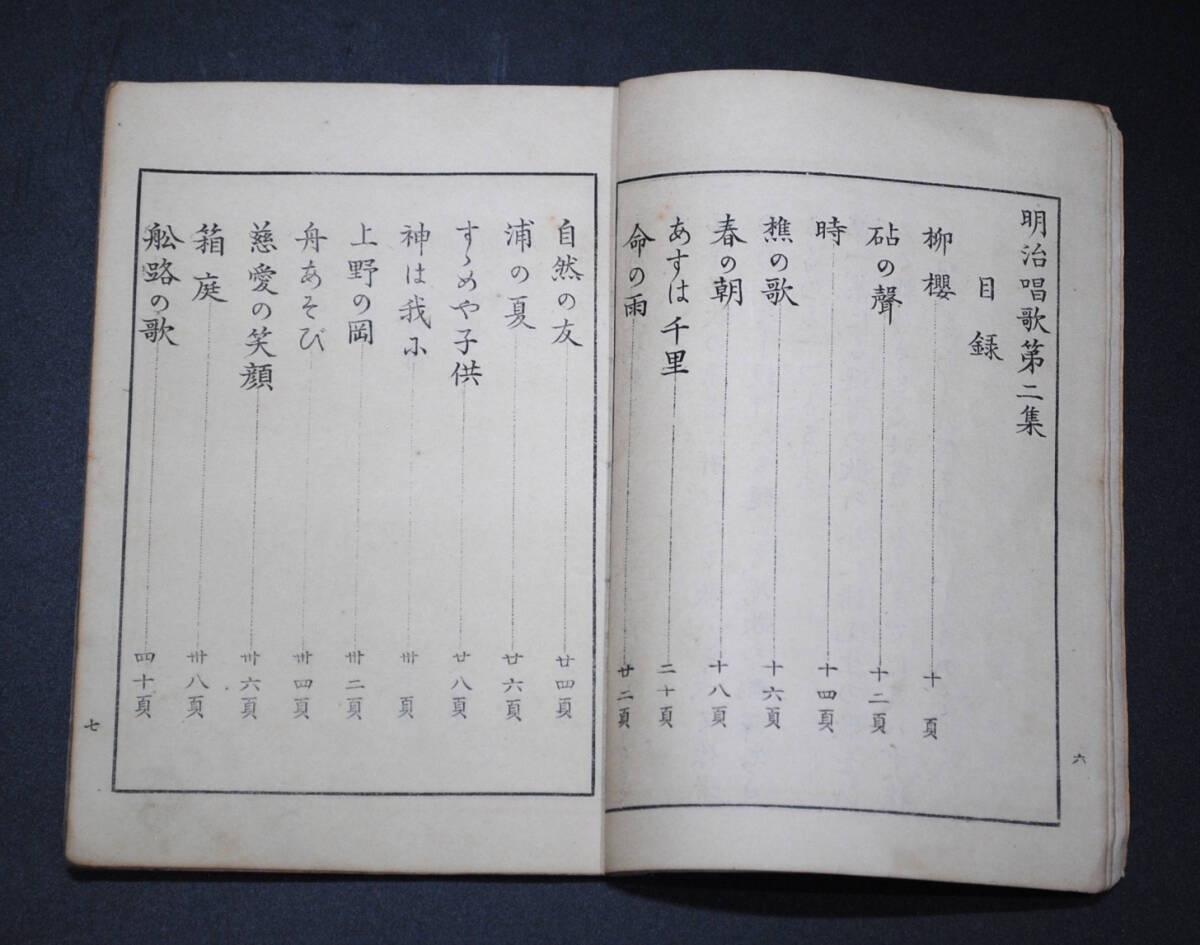 明治唱歌第二集
目録
柳櫻 十頁
砧の聲 十二頁
時 十四頁
樵の歌 十六頁
春の朝 十八頁
あすは千里 二十頁
命の雨 廿二頁
六
自然の友 廿四頁
浦の夏 廿六頁
すゞめや子供 廿八頁
神は我に 卅頁
上野の岡 卅二頁
舟あそび 卅四頁
慈愛の笑顔 卅六頁
箱庭 卅八頁
舩路の歌 四十頁
七